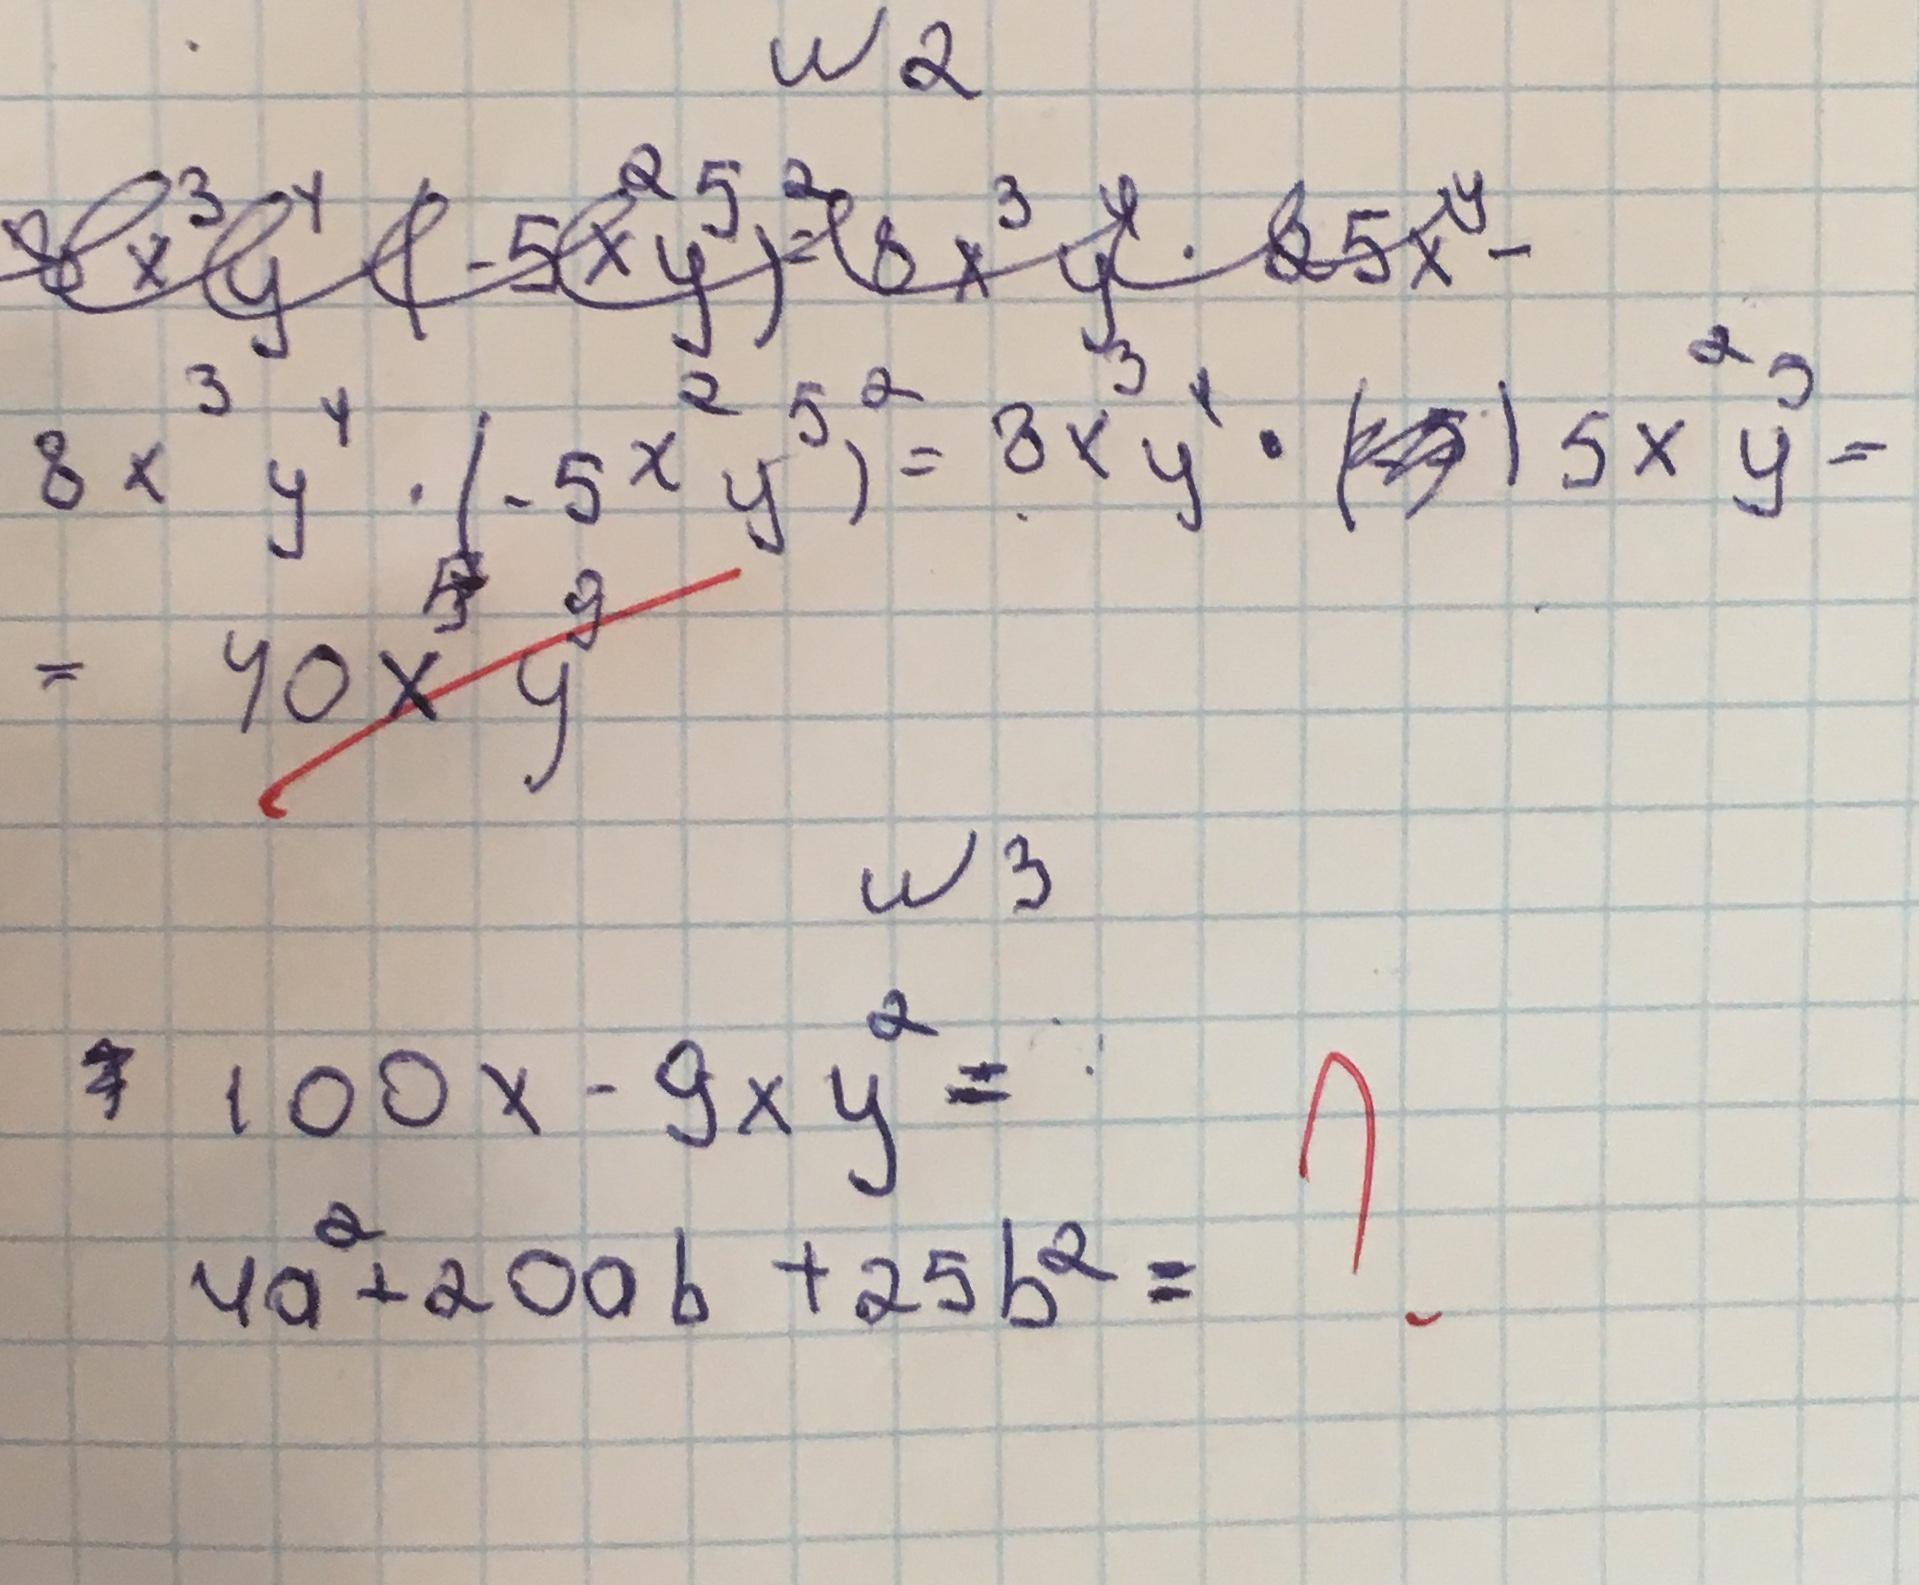 №2
8x³y⁴(-5x²y⁵)²=8x³y⁴·25x⁴-
8x³y⁴·(-5x²y⁵)²=8x³y⁴·5x²y⁵=
=40x⁵y⁹
№3
100x-9xy²=
4a²+20ab+25b²=
?